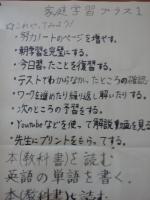 家庭学習プラス1
☆これやってみよう!
・努力ノートのページを増やす。
・朝学習を完璧にする。
・今日習ったことを復習する。
・テストでわからなかったところの確認
・ワークを進めたり繰り返し解いたりする。
・次のところの予習をする。
・Youtubeなどを使って解説動画を見る
・先生にプリントをもらってする。
本(教科書)を読む
英語の単語を書く。
本(教科書)を読む